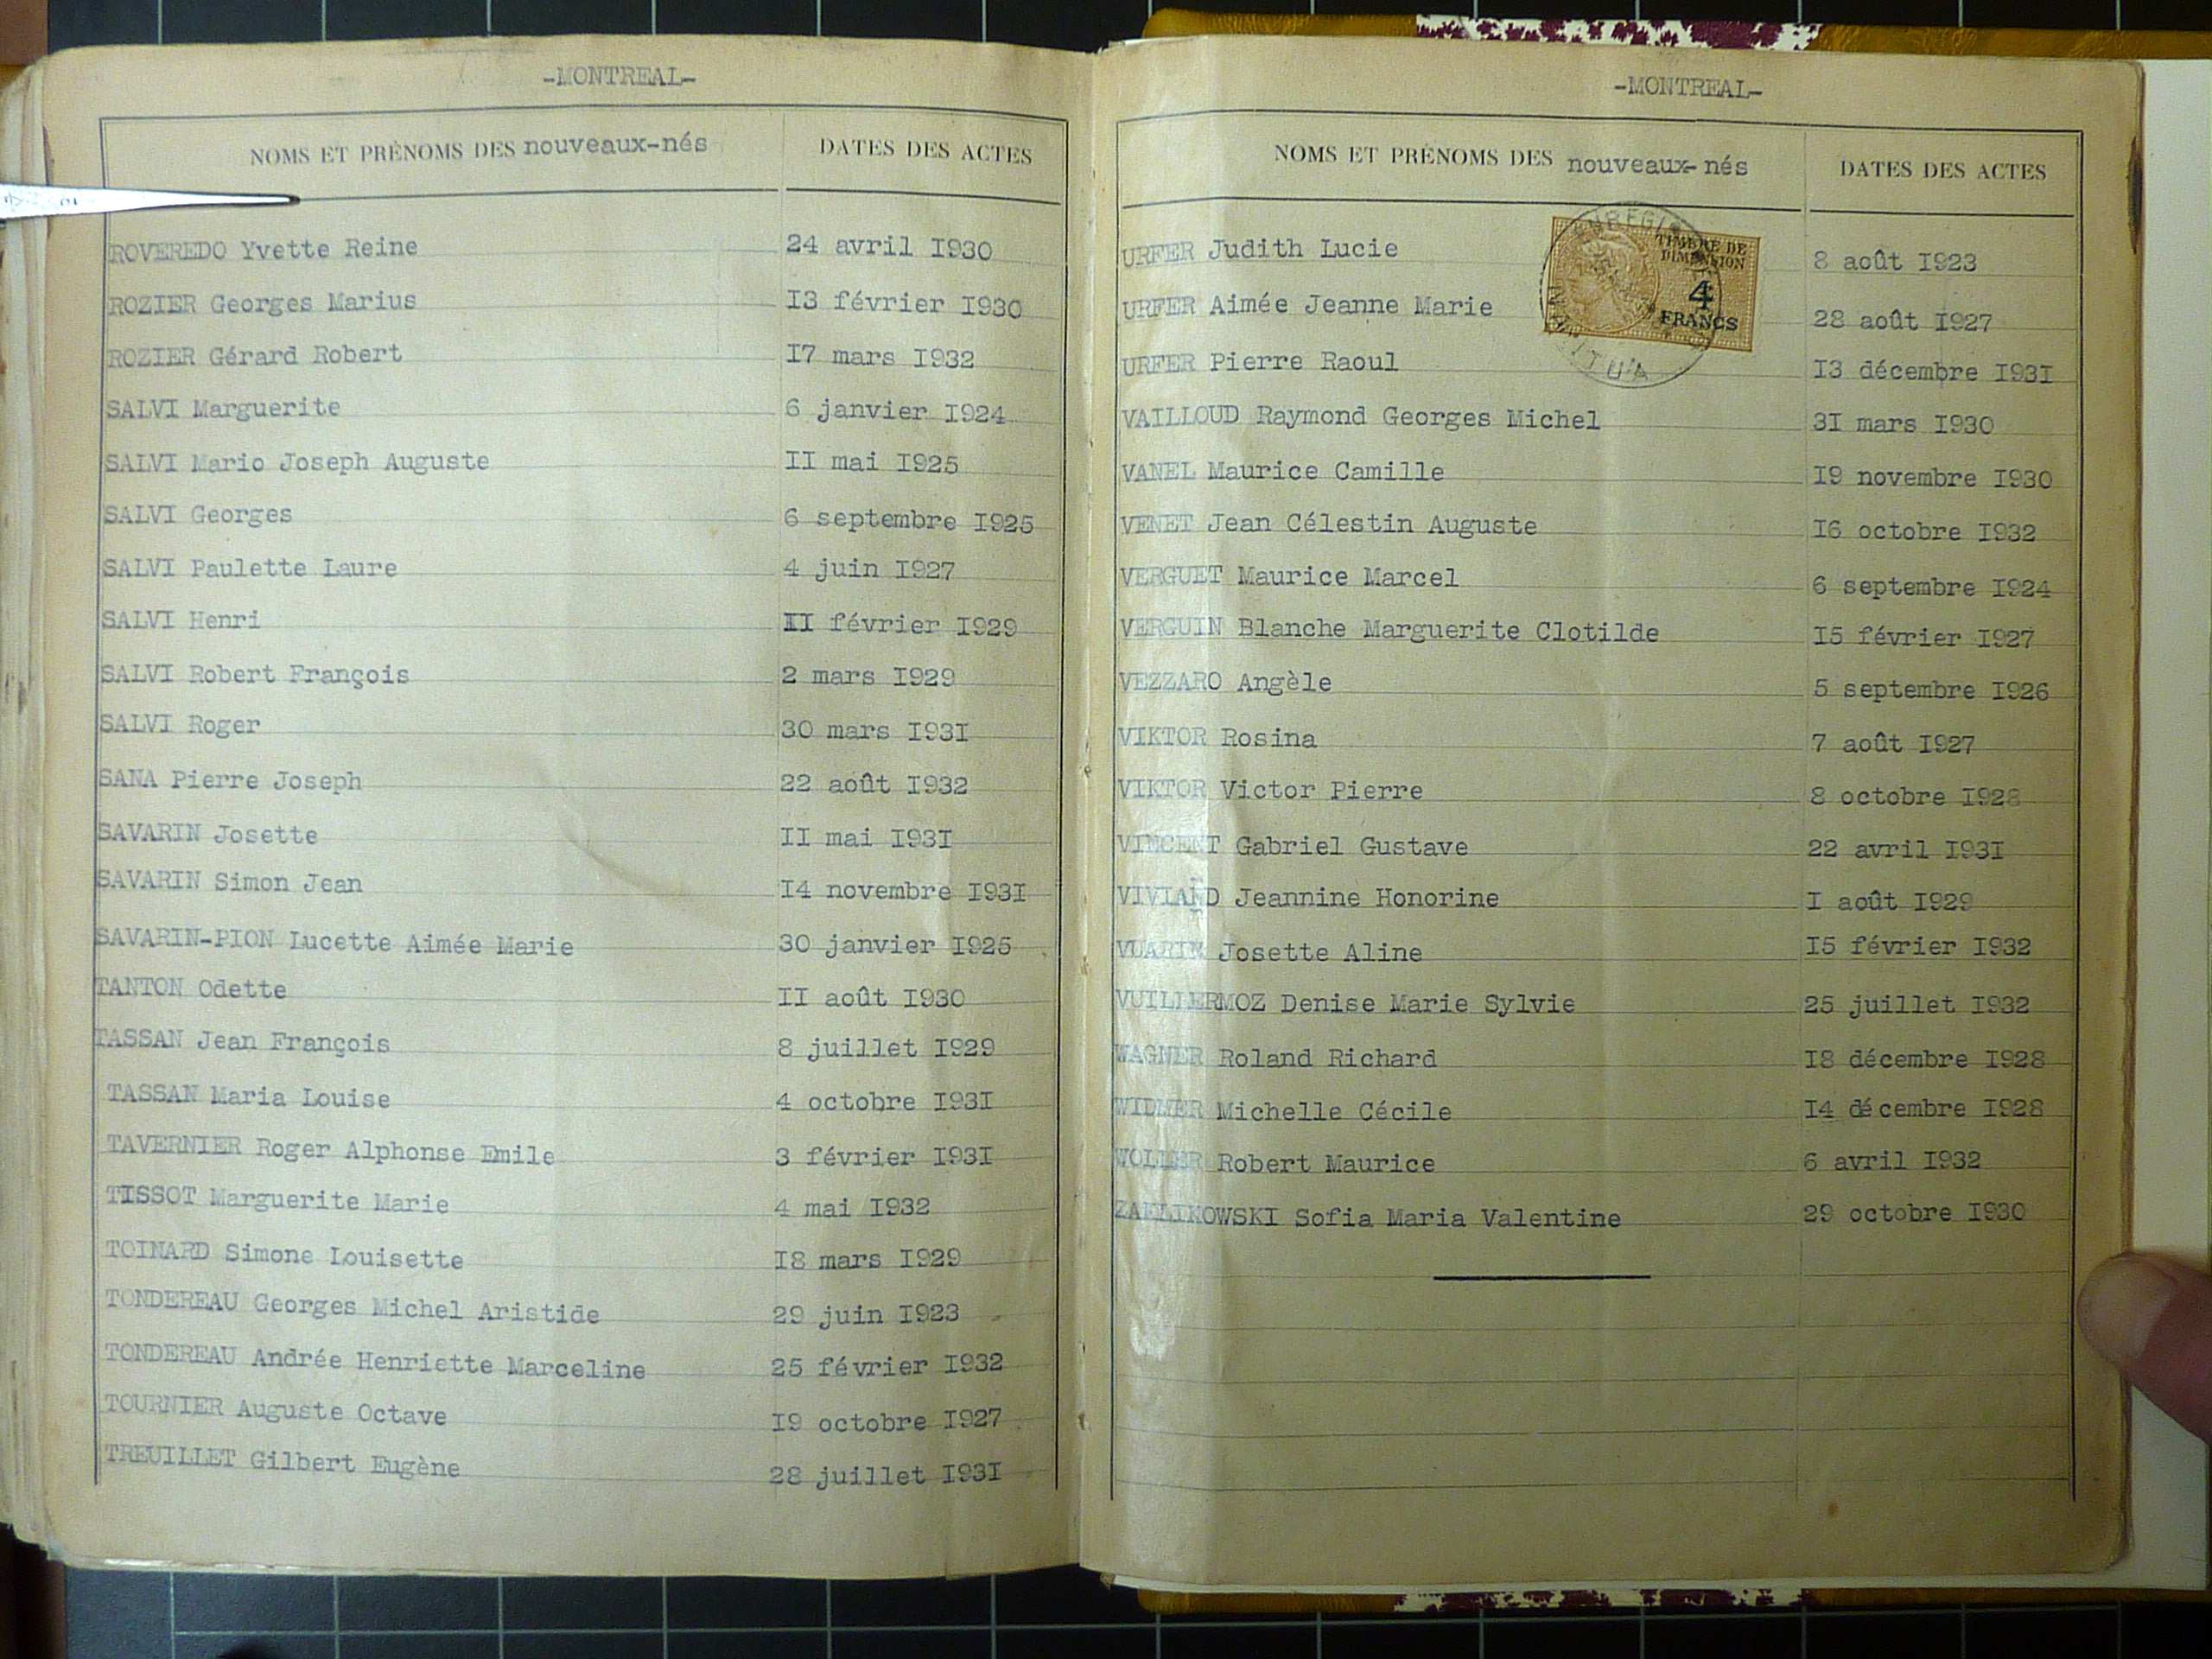 -MONTREAL-
NOMS ET PRÉNOMS DES nouveaux-nés DATES DES ACTES
ROVEREDO Yvette Reine 24 avril I930
ROZIER Georges Marius I3 février I930
ROZIER Gérard Robert I7 mars I932
SALVI Marguerite 6 janvier I924
SALVI Mario Joseph Auguste II mai I925
SALVI Georges 6 septembre I925
SALVI Paulette Laure 4 juin I927
SALVI Henri II février I929
SALVI Robert François 2 mars I929
SALVI Roger 30 mars I93I
SANA Pierre Joseph 22 août I932
SAVARIN Josette II mai I93I
SAVARIN Simon Jean I4 novembre I93I
SAVARIN-PION Lucette Aimée Marie 30 janvier I925
TANTON Odette II août I930
TASSAN Jean François 8 juillet I929
TASSAN Maria Louise 4 octobre I93I
TAVERNIER Roger Alphonse Emile 3 février I93I
TISSOT Marguerite Marie 4 mai I932
TOINARD Simone Louisette I8 mars I929
TONDEREAU Georges Michel Aristide 29 juin I923
TONDEREAU Andrée Henriette Marceline 25 février I932
TOURNIER Auguste Octave I9 octobre I927
TREUILLET Gilbert Eugène 28 juillet I93I
-MONTREAL-
NOMS ET PRÉNOMS DES nouveaux-nés DATES DES ACTES
TIMBRE DE
DIMENSION
4
FRANCS
URFER Judith Lucie 8 août I923
URFER Aimée Jeanne Marie 28 août I927
URFER Pierre Raoul I3 décembre I93I
VAILLOUD Raymond Georges Michel 3I mars I930
VANEL Maurice Camille I9 novembre I930
VENET Jean Célestin Auguste I6 octobre I932
VERGUET Maurice Marcel 6 septembre I924
VERGUIN Blanche Marguerite Clotilde I5 février I927
VEZZARO Angèle 5 septembre I926
VIKTOR Rosina 7 août I927
VIKTOR Victor Pierre 8 octobre I928
VINCENT Gabriel Gustave 22 avril I93I
VIVIAND Jeannine Honorine I août I929
VUARIN Josette Aline I5 février I932
VUILLERMOZ Denise Marie Sylvie 25 juillet I932
WAGNER Roland Richard I8 décembre I928
WIDMER Michelle Cécile I4 décembre I928
Robert Maurice 6 avril I932
Sofia Maria Valentine 29 octobre I930